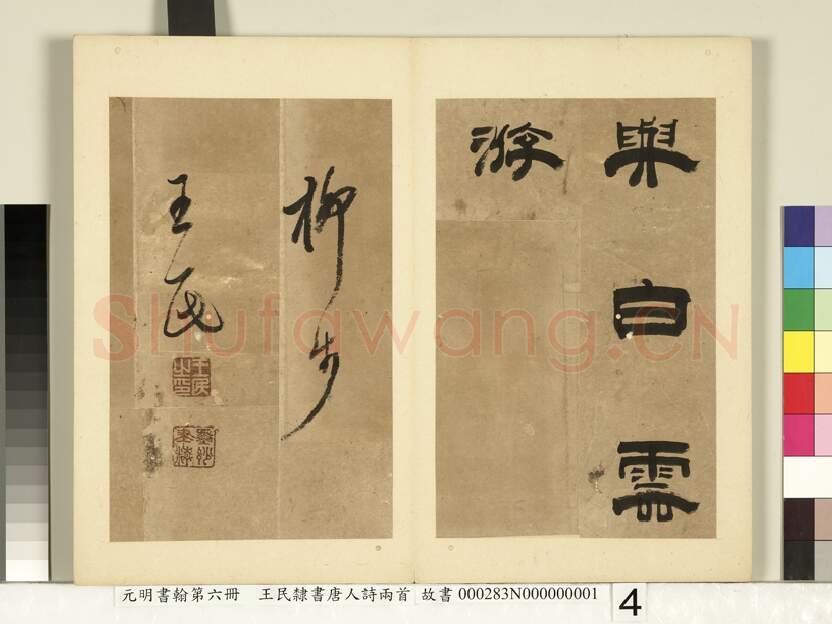 與白雲
游
柳步
王民
Shufawang.CN
元明書翰第六冊 王民隸書唐人詩兩首 故書 000283N000000001
4